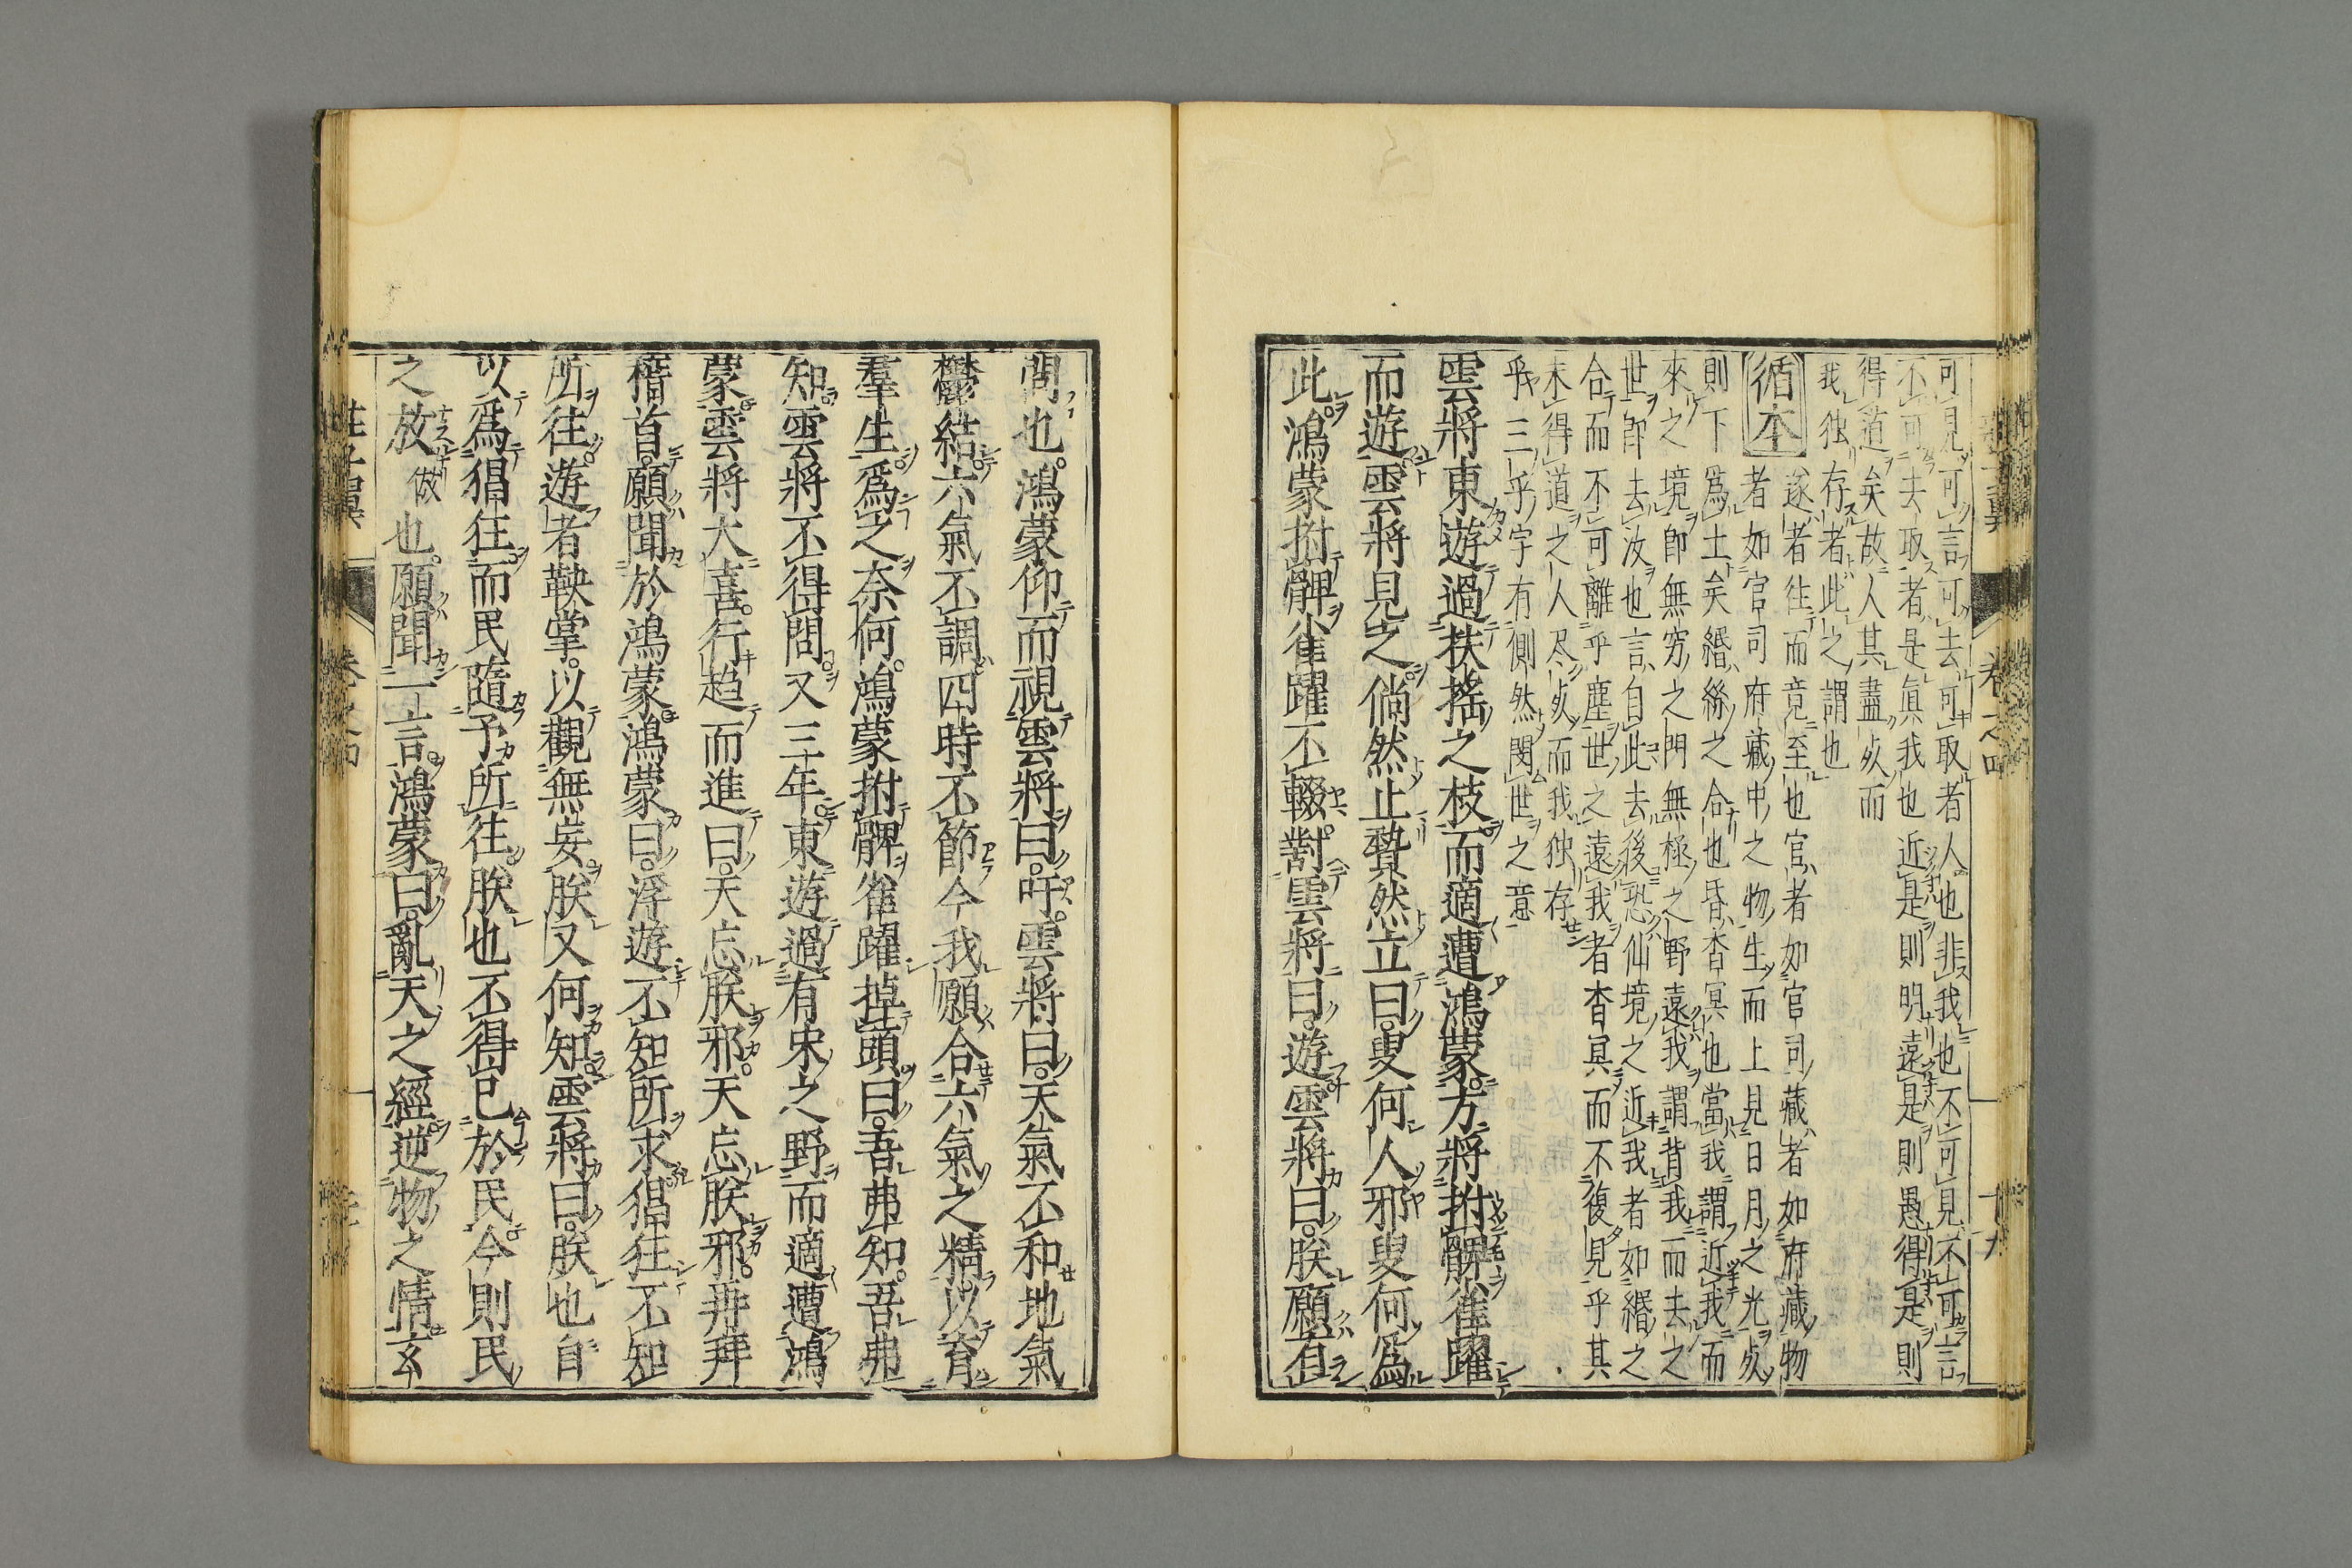 可見可言可去可取者人也非我也不可見不可言
不可去取者是眞我也近是則明遠是則愚得是則
得道矣故人其盡死而
我独存者此之謂也
循本
遂者往而竟至也官者如官司藏者如府藏物
者如官司府藏中之物生而上見日月之光死
則下爲土矣緡緜之合也昏杳冥也當我謂近我而
來之境即無穷之門無極之野遠我謂背我而去之
世即去汝也言自此去後恐仙境之近我者如緡之
合而不可離乎塵世之遠我者杳冥而不復見乎其
未得道之人尽死而我独存
乎三乎字有側然閔世之意
雲將東遊過扶搖之枝而適遭鴻蒙方將拊髀雀躍
而遊雲將見之倘然止贄然立曰叟何人邪叟何爲
此鴻蒙拊髀雀躍不輟對雲將曰遊雲將曰朕願有
問也鴻蒙仰而視雲將曰吁雲將曰天氣不和地氣
鬱結六氣不調四時不節今我願合六氣之精以育
羣生爲之奈何鴻蒙拊髀雀躍掉頭曰吾弗知吾弗
知雲將不得問又三年東遊過有宋之野而適遭鴻
蒙雲將大喜行趋而進曰天忘朕邪天忘朕邪再拜
稽首願聞於鴻蒙鴻蒙曰浮遊不知所求猖狂不知
所往遊者鞅掌以觀無妄朕又何知雲將曰朕也自
以爲猖狂而民隨予所往朕也不得已於民今則民
之放倣也願聞一言鴻蒙曰亂天之經逆物之情玄